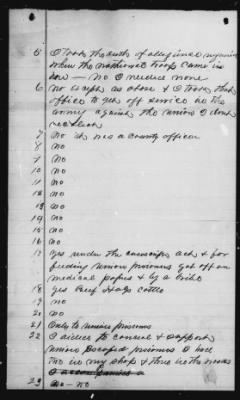 5 I took the oath of allegiance required
when the national troops came in
here — No I needed none
6 no except as above & I took that
office to get off service in the
army against the union I dont
recollect
7 No it was a county officer
8 No
9 No
10 No
11 No
12 No
13 No
14 No
15 No
16 No
17 Yes under the conscript act & for
feeding union prisoners got off on
medical papers & by a bribe
18 Yes Beef Hogs cattle
19 no
20 no
21 Only to union prisoners
22 I aided to conceal & support
union escaped prisoners I hid
two in my shop & three in the woods
23 no — no